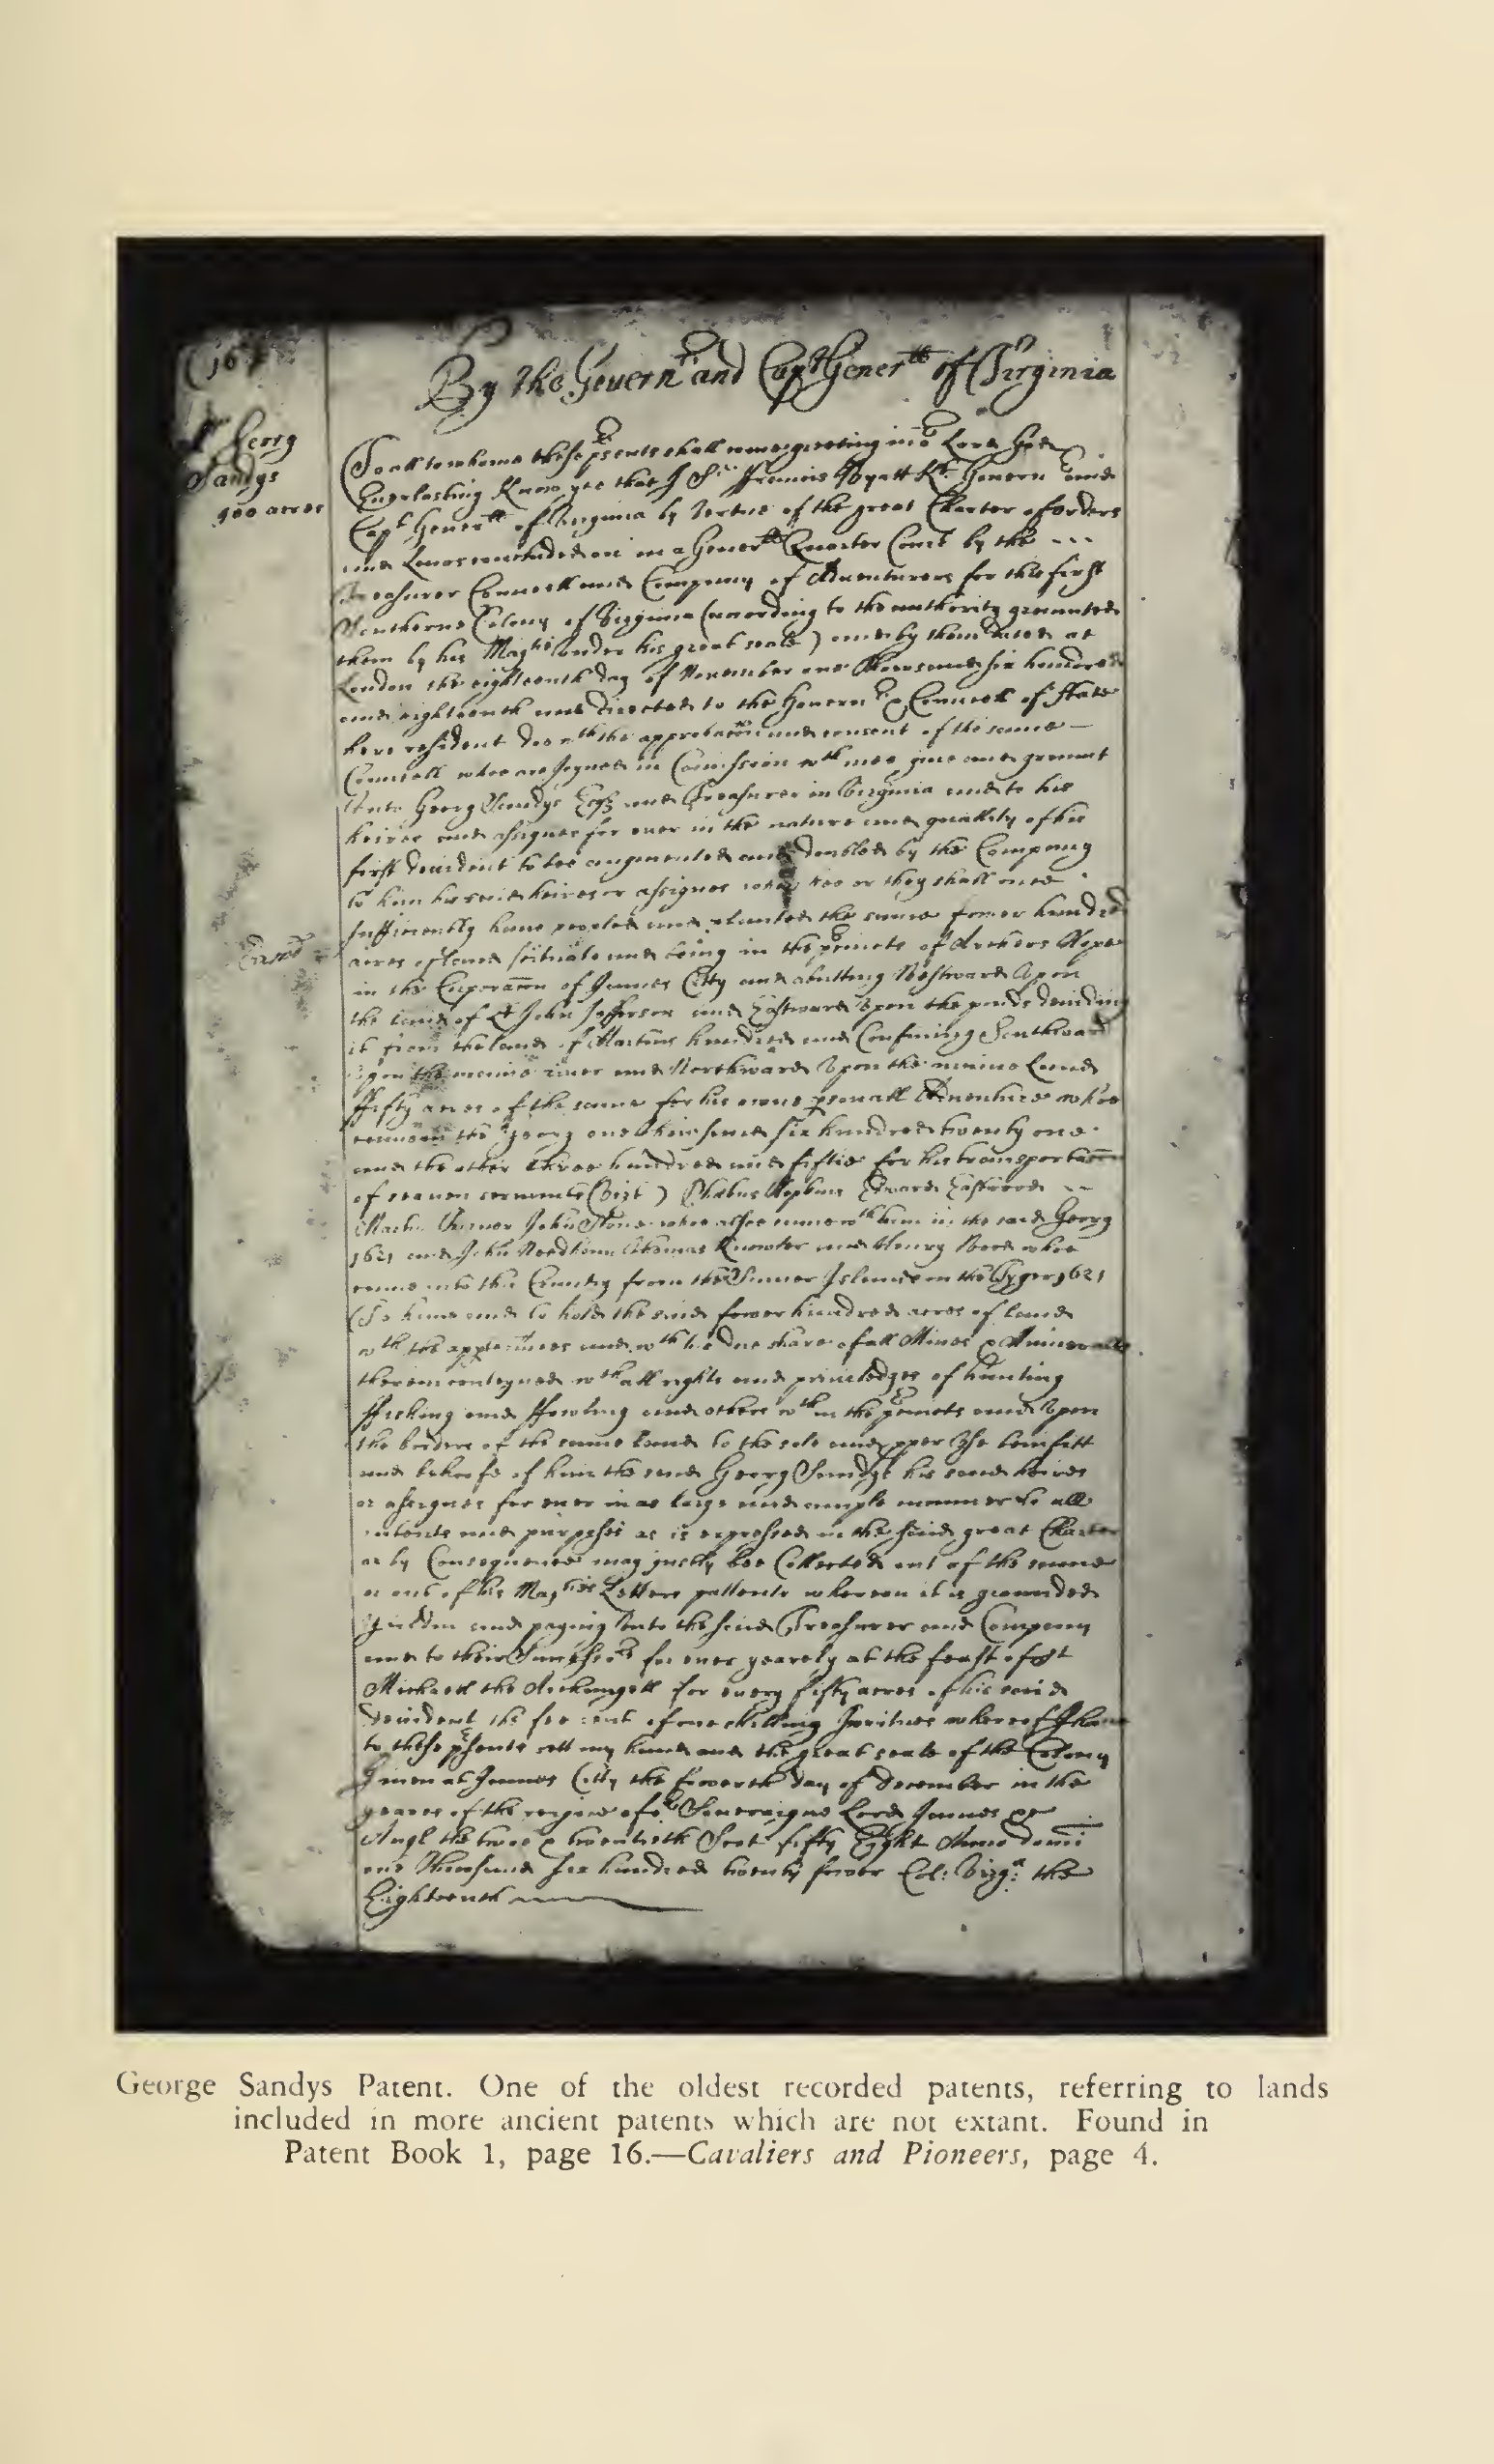 (16
Mr Georg
Sandys
400 acres
By the Governr and Capt Generll of Virginia
To all to whome these psents shall come greeting in or Lord God
Everlasting Know yee that I Sr Francis Wyatt Kt Governr and
Capt Generll of Virginia by vertue of the great Charter of orders
and Lawes concluded on in a Generll Quarter Court by the ---
Treasurer Councell and Company of Adventurers for this first
Southerne Colony of Virginia (according to the authority graunted
them by his Maties under his great seale) and by them dated at
London the eighteenth day of November one thousand six hundred
and eighteenth and directed to the Governr & Councell of State
here resident doe wth the approbacon and consent of the same —
Councell who are Joyned in Comission wth mee give and graunt
Unto Georg Sandys Esqr and Treasurer in Virginia and to his
heires and assignes for ever in the nature and quallity of his
first devident to bee augmented and doubled by the Company
to him his said heires or assignes when hee or they shall once
sufficiently have peopled and planted the same fower hundred
acres of land scituate and being in the precincts of Archers Hope
in the Corporacon of James Citty and abutting Westward upon
the land of John Jefferson and Eastward upon the ponds deviding
it from the land of Martins hundred and Confining Southward
upon the maine river and Northward upon the maine Land
ffifty acres of the same for his owne psonall Adventure who
came in the Georg one thousand six hundred twenty one
and the other three hundred and fiftie for his transportacon
of seaven servants (Vizt) Hopkins Edward --
Martin Turner John Stone who alsoe came wth him in the said Georg
1621 and John Needham Thomas Knowler and Henry Wood who
came into this Country from the Sumer Islands in the Tyger 1621
To have and to hold the said fower hundred acres of land
wth the appurtnces and wth his due share of all Mines & Mineralls
therein conteyned wth all rights and priviledges of hunting
ffishing and ffowling and others wthin the precincts and upon
the borders of the same land to the sole and pper use benifitt
and behoofe of him the said Georg Sandys his said heires
or assignes for ever in as large and ample manner to all
intents and purposes as is expressed in the said great Charter
or by Consequence may justly bee Collected out of the same
or out of his Maties Letters pattents whereon it is grounded
Yielding and paying unto the said Treasurer and Company
and to their Successors for ever yearely at the feast of St
Michaell the Archangell for every fifty acres of his said
devident the fee rent of one shilling Inwitnes whereof I have
to these psents sett my hand and the great seale of the Colony
Given at James Citty the fowerth day of December in the
yeares of the reigne of or Soveraigne Lord James
Angl the two & twentieth Scot fifty Eight Anno domi
one thousand six hundred twenty fower Col: Virga: the
Eighteenth
George Sandys Patent. One of the oldest recorded patents, referring to lands
included in more ancient patents which are not extant. Found in
Patent Book 1, page 16.—Cavaliers and Pioneers, page 4.